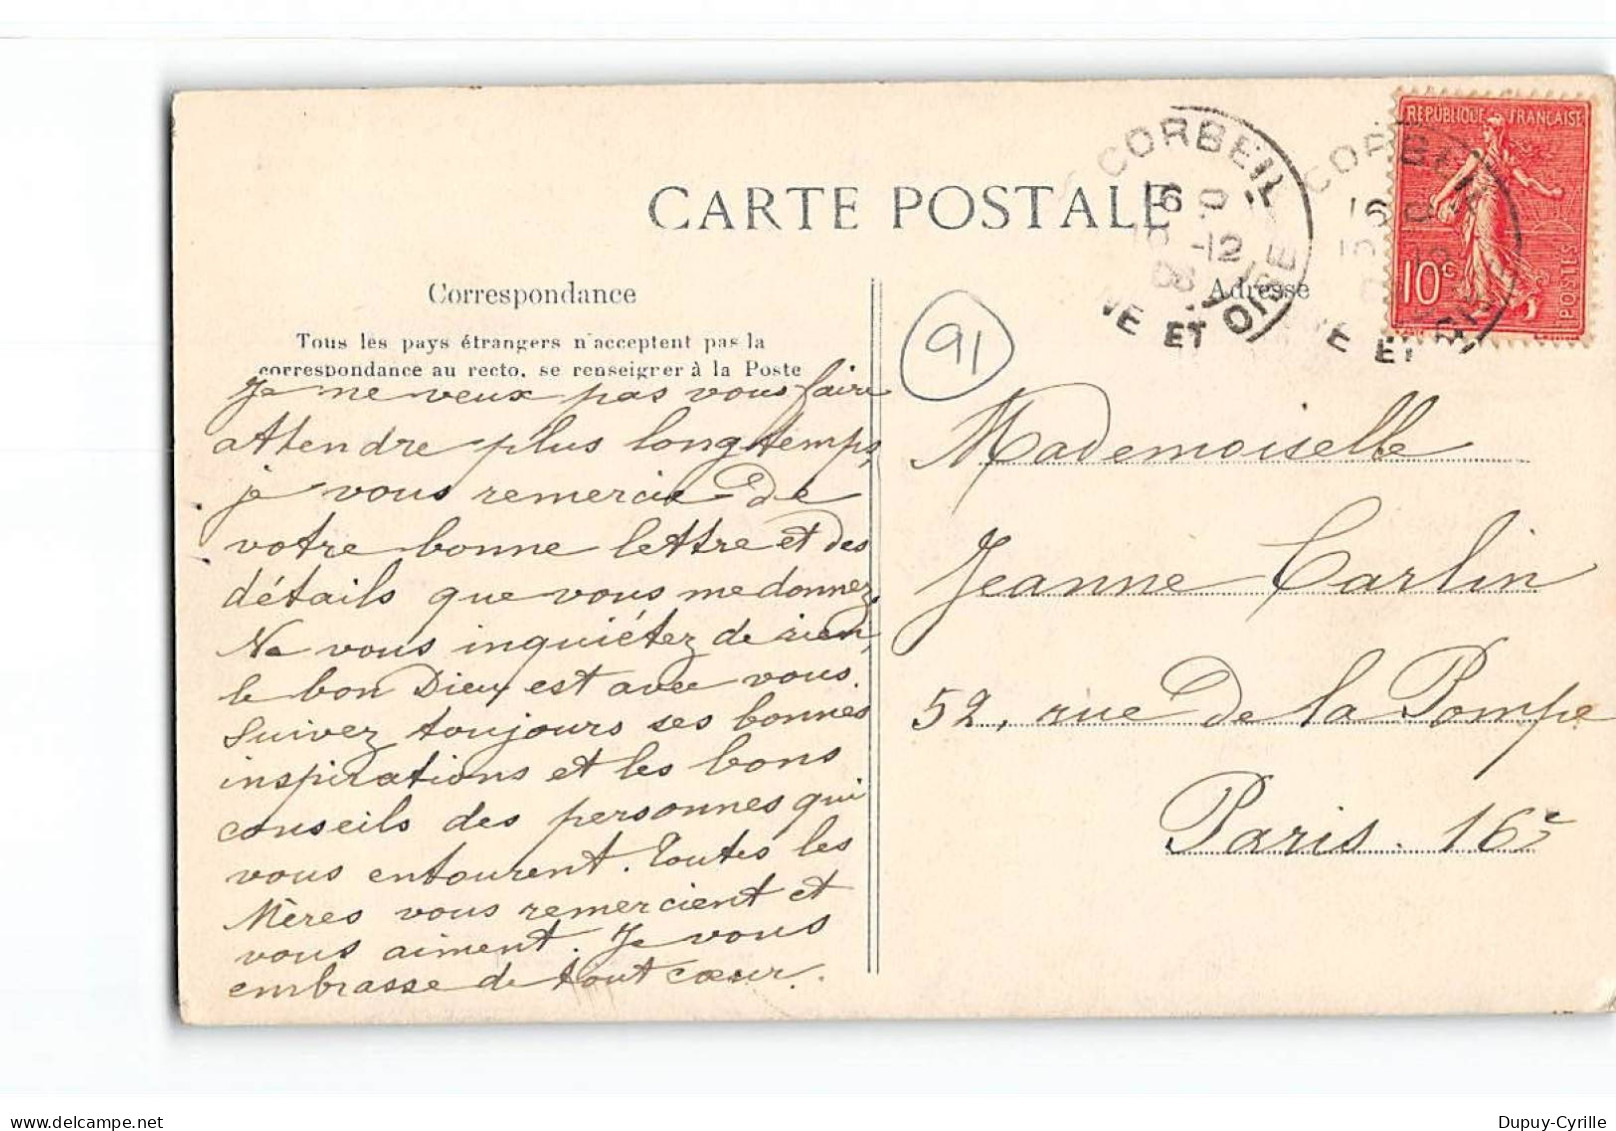 CARTE POSTALE
Correspondance
Tous les pays étrangers n'acceptent pas la
correspondance au recto, se renseigner à la Poste
Je ne veux pas vous faire
attendre plus longtemps,
je vous remercie de
votre bonne lettre et des
détails que vous me donnez.
Ne vous inquiétez de rien,
le bon Dieu est avec vous.
Suivez toujours ses bonnes
inspirations et les bons
conseils des personnes qui
vous entourent. Toutes les
Mères vous remercient et
vous aiment. Je vous
embrasse de tout cœur.
91
Adresse
CORBEIL
16
-12
08
NE ET OISE
CORBEIL
16
E ET OI
REPUBLIQUE FRANÇAISE
10c
POSTES
Mademoiselle
Jeanne Carlin
52, rue de la Pompe
Paris. 16e
Dupuy-Cyrille